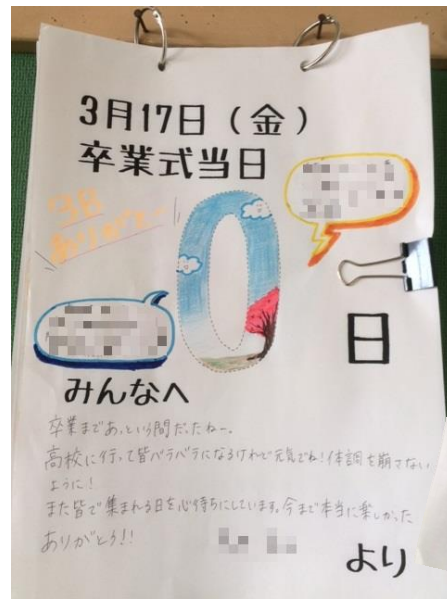 3月17日（金）
卒業式当日
3年
ありがとー
0
日
みんなへ
卒業まであっという間だったねー。
高校に行って皆バラバラになるけれど元気でね!体調を崩さない
ように!
また皆で集まれる日を心待ちにしています。今まで本当に楽しかった
ありがとう!!
より